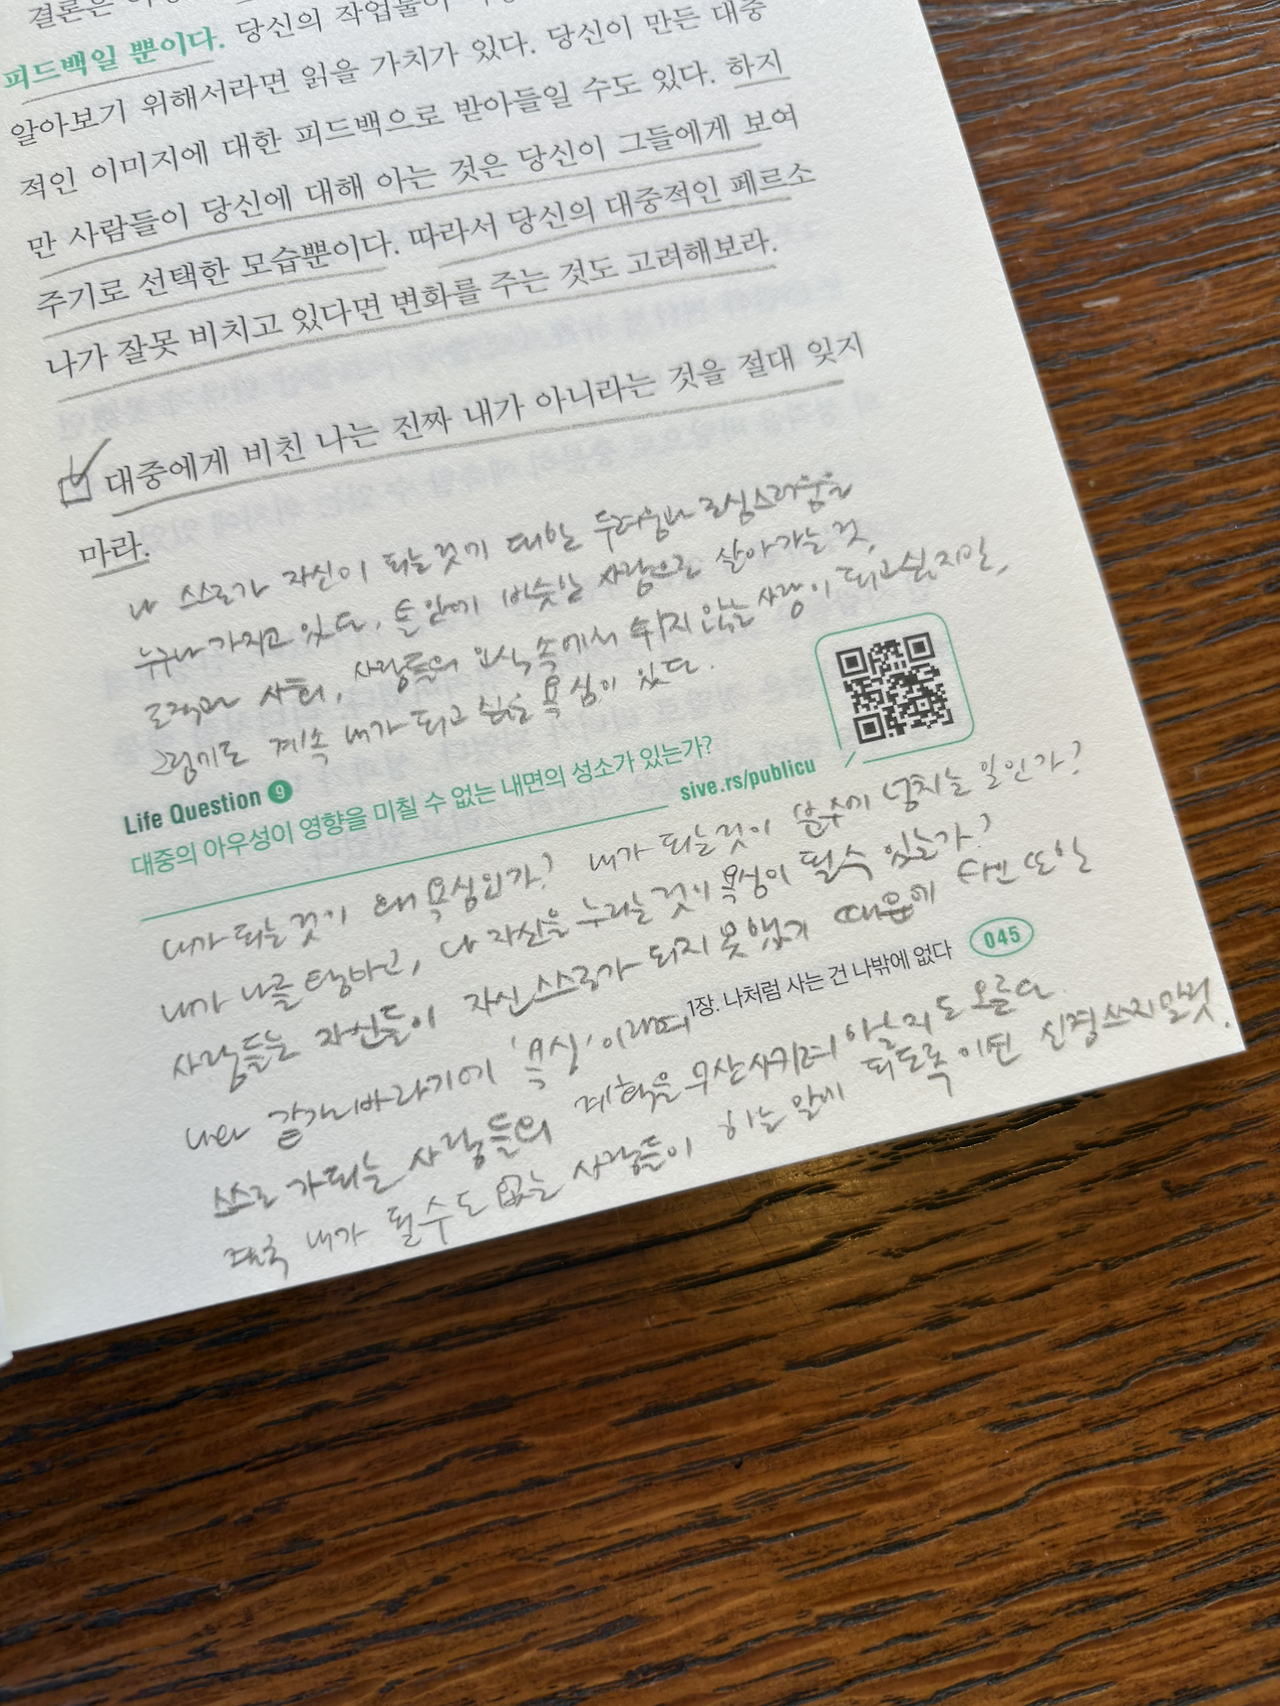 결론은
피드백일 뿐이다. 당신의 작업물이
알아보기 위해서라면 읽을 가치가 있다. 당신이 만든 대중
적인 이미지에 대한 피드백으로 받아들일 수도 있다. 하지
만 사람들이 당신에 대해 아는 것은 당신이 그들에게 보여
주기로 선택한 모습뿐이다. 따라서 당신의 대중적인 페르소
나가 잘못 비치고 있다면 변화를 주는 것도 고려해보라.
대중에게 비친 나는 진짜 내가 아니라는 것을 절대 잊지
마라.
나 스스로가 자신이 되는것에 대한 두려움과 조심스러움을
누구나 가지고 있다. 비슷한 사람으로 살아가는 것.
사회, 사람들의 속에서 튀지 않는 사람이 되고싶지만,
그럼에도 계속 내가 되고 싶은 욕심이 있다.
Life Question 9
대중의 아우성이 영향을 미칠 수 없는 내면의 성소가 있는가?
sive.rs/publicu
내가 되는것이 왜 욕심인가? 내가 되는것이 분수에 넘치는 일인가?
내가 나를 탐하고, 나 자신을 누리는것이 욕심이 될수 있는가?
사람들은 자신들이 자신 스스로가 되지 못했기 때문에 다만 또한
1장. 나처럼 사는 건 나밖에 없다 045
나와 같기 바라기에 '욕심'이라며
스스로가 되는 사람들의 계획을 무산시키려 아닐지도 모른다.
내가 될수도 없는 사람들이 하는 말에 되도록이면 신경쓰지말것.